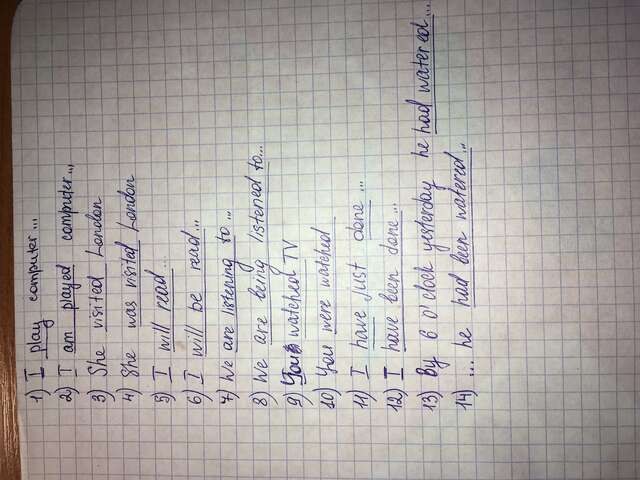 1) I play computer...
2) I am played computer...
3) She visited London
4) She was visited London
5) I will read...
6) I will be read...
7) We are listening to...
8) We are being listened to...
9) You watched TV
10) You were watched
11) I have just done...
12) I have been done...
13) By 6 o'clock yesterday he had watered...
14) ... he had been watered...